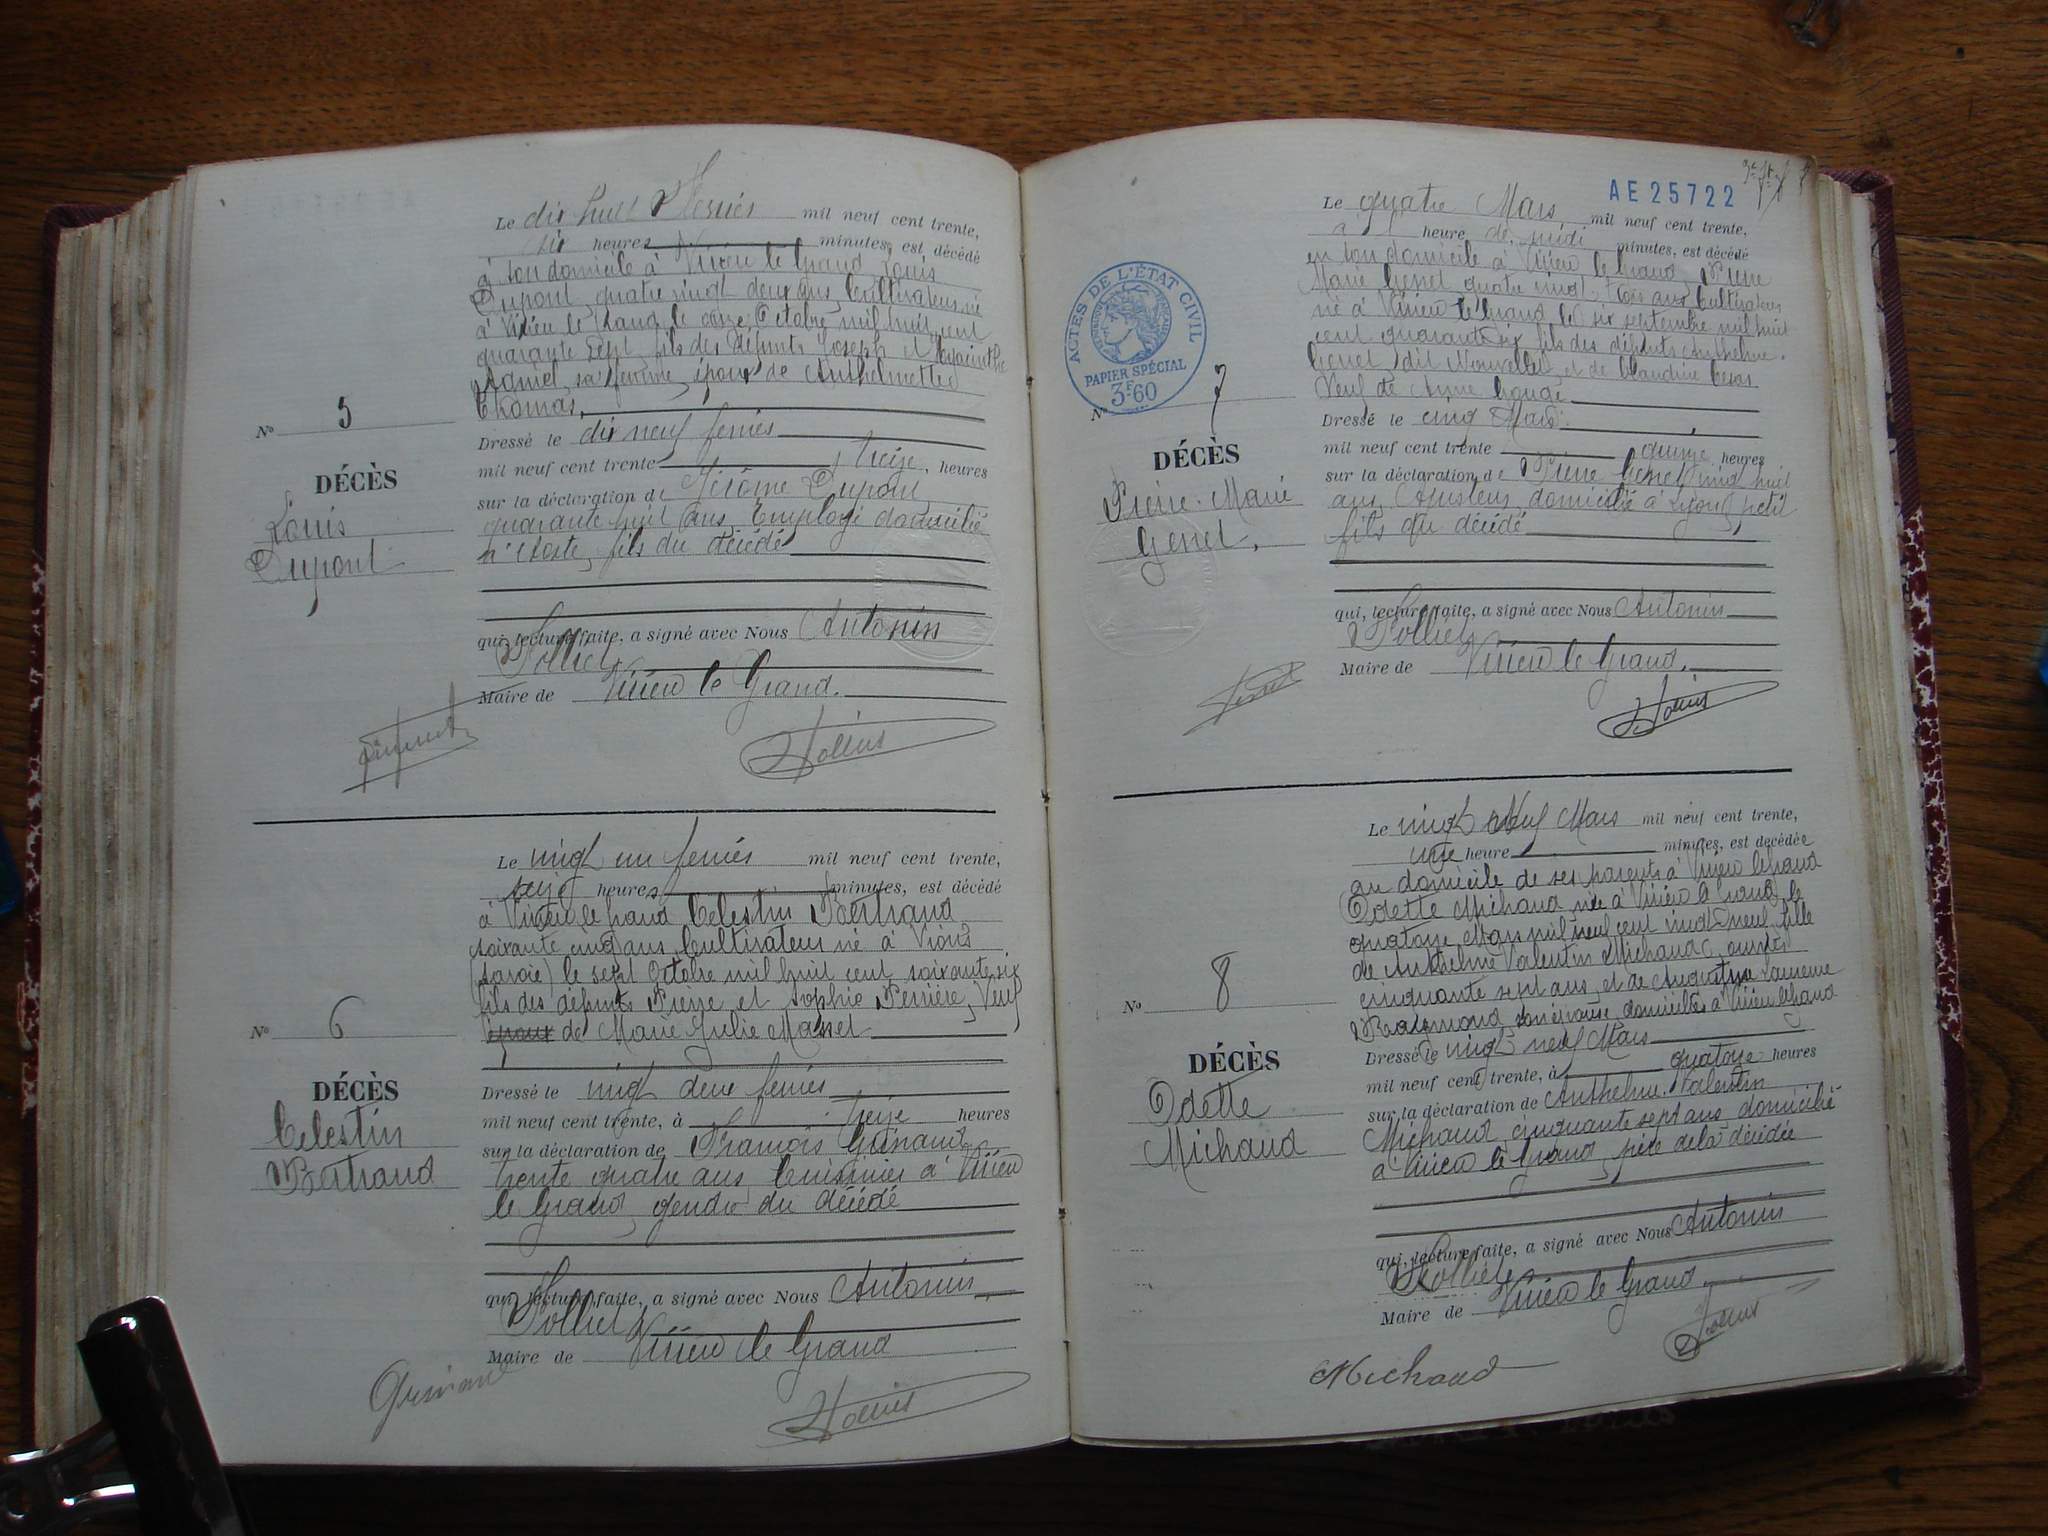 Le dix huit Février mil neuf cent trente,
dix heures minutes, est décédé
à son domicile à Virieu le Grand Louis
Dupont, quatre vingt deux ans, Cultivateur, né
à Virieu le Grand le onze Octobre mil huit cent
quarante sept, fils des défunts Joseph et Hyacinthe
sa femme, époux de Anthelmette
Thomas,
N° 5
DÉCÈS
Louis
Dupont
Dressé le dix neuf février
mil neuf cent trente treize, heures
sur la déclaration de Jérôme Dupont
quarante huit ans Employé domicilié
fils du décédé
qui, lecture faite, a signé avec Nous Antonin
Maire de Virieu le Grand.
Le vingt un février mil neuf cent trente,
seize heures minutes, est décédé
à Virieu le Grand Célestin Bertrand
soixante cinq ans, Cultivateur né à Vions
(Savoie) le sept Octobre mil huit cent soixante six
fils des défunts Pierre et Sophie Perrière, Veuf
époux de Marie Julie Massel
N° 6
DÉCÈS
Célestin
Bertrand
Dressé le vingt deux février
mil neuf cent trente, à treize heures
sur la déclaration de François Guinand
trente quatre ans Cuisinier à Virieu
le Grand, gendre du décédé
qui, lecture faite, a signé avec Nous Antonin
Maire de Virieu le Grand
AE 25722
Le quatre Mars mil neuf cent trente,
à heure de midi minutes, est décédé
en son domicile à Virieu le Grand, Pierre
Marie Genet quatre vingt trois ans Cultivateur
né à Virieu le Grand le six septembre mil huit
cent quarante six fils des défunts Anthelme
Genet dit Nouvellet et de Claudine
Veuf de Anne
ACTES DE L'ÉTAT CIVIL
PAPIER SPÉCIAL
3F.60
N° 7
DÉCÈS
Pierre-Marie
Genet,
Dressé le cinq Mars
mil neuf cent trente quinze heures
sur la déclaration de Pierre Genet vingt huit
ans, domicilié à Lyon, petit
fils du décédé
qui, lecture faite, a signé avec Nous Antonin
Maire de Virieu le Grand.
Le vingt Neuf Mars mil neuf cent trente,
une heure minutes, est décédée
au domicile de ses parents à Virieu le Grand
Odette Michaud née à Virieu le Grand le
quatorze Mars mil neuf cent vingt neuf, fille
de Anthelme Valentin Michaud,
cinquante sept ans, et de Augustine Laurence
Raymond, son épouse, domiciliés à Virieu le Grand
N° 8
DÉCÈS
Odette
Michaud
Dressé le vingt neuf Mars
mil neuf cent trente, à quatorze heures
sur la déclaration de Anthelme Valentin
Michaud, cinquante sept ans, domicilié
à Virieu le Grand, père de la décédée
qui, lecture faite, a signé avec Nous Antonin
Maire de Virieu le Grand
Michaud